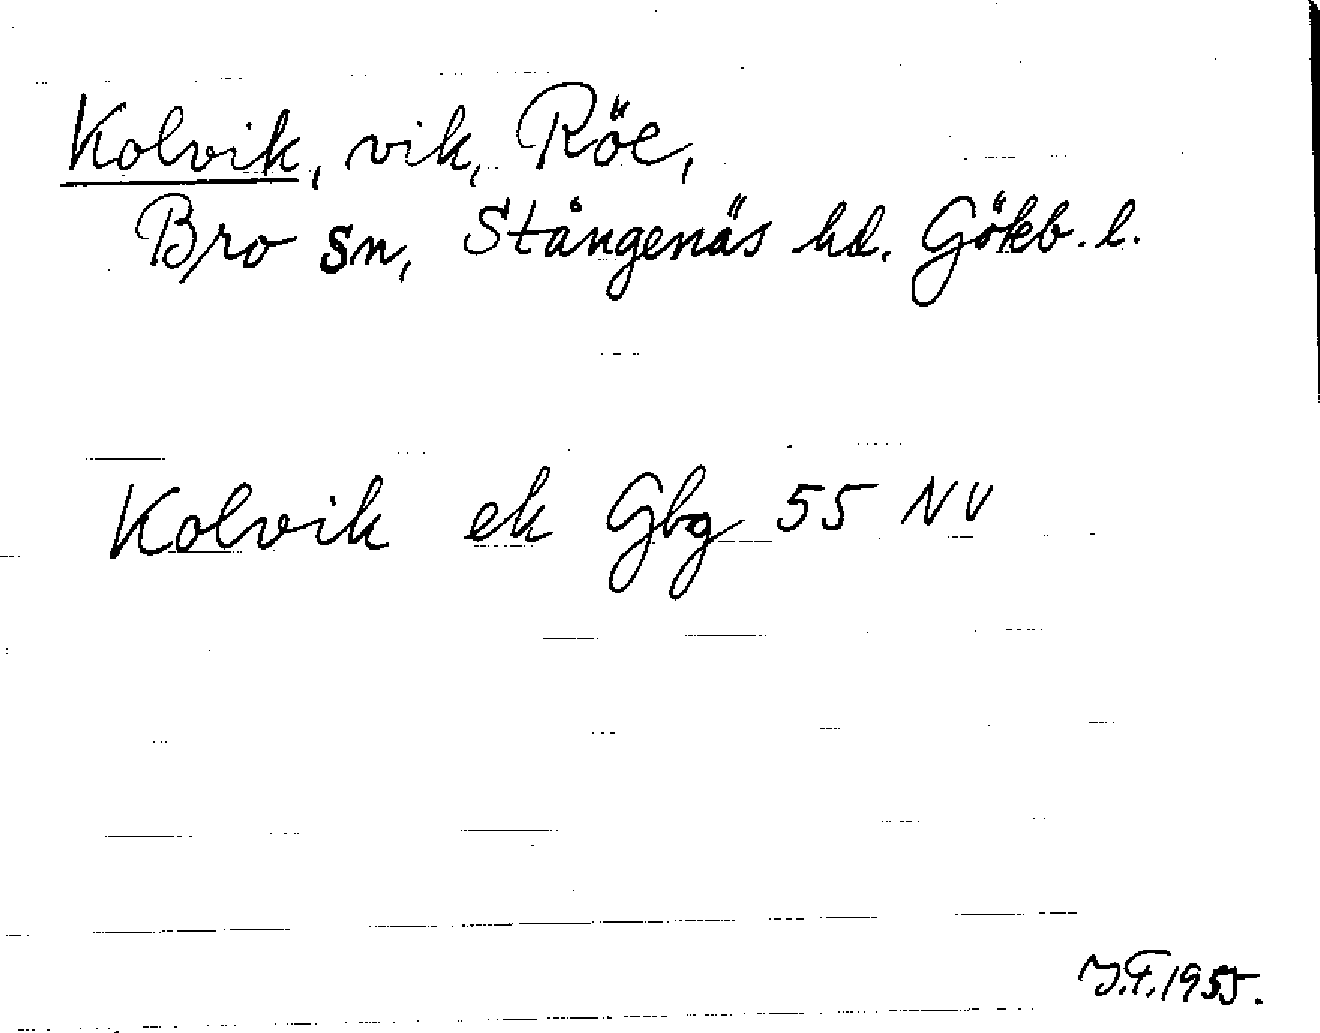 Kolvik, vik, Röe,
Bro sn, Stångenäs hd. Gökb. l.
Kolvik ek Gbg 55 NV
J.F. 1955.